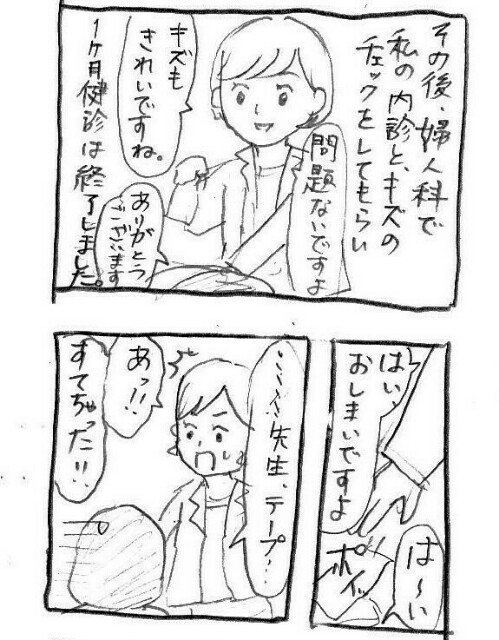 その後、婦人科で
私の内診と、キズの
チェックをしてもらい
問題ないですよ
キズも
きれいですね。
ありがとう
ございます
1ヶ月健診は終了しました。
はい、
おしまいですよ
は〜い
ポイッ
先生、テープ…
あっ!!
すてちゃった!!